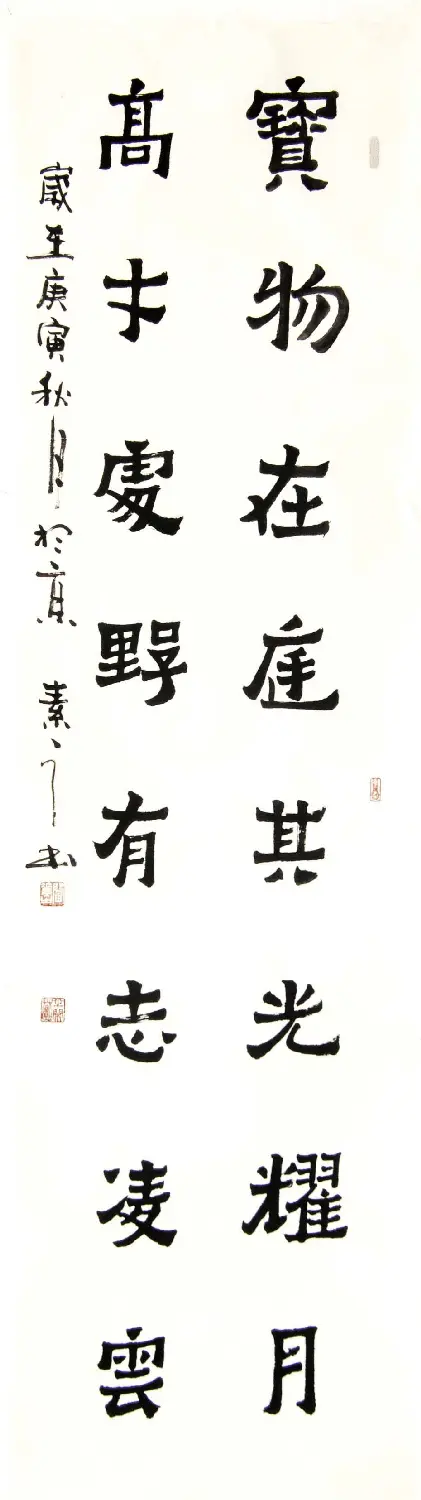 寶物在庭其光耀月
高才處野有志凌雲
歲在庚寅秋月於京 素